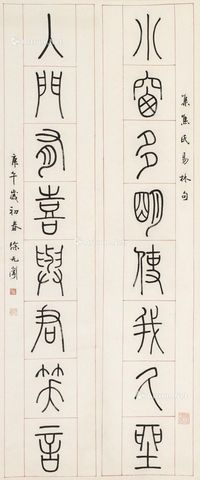 集焦氏易林句
小窗多明使我久坐
入門有喜與君笑言
庚午歲初春徐无聞